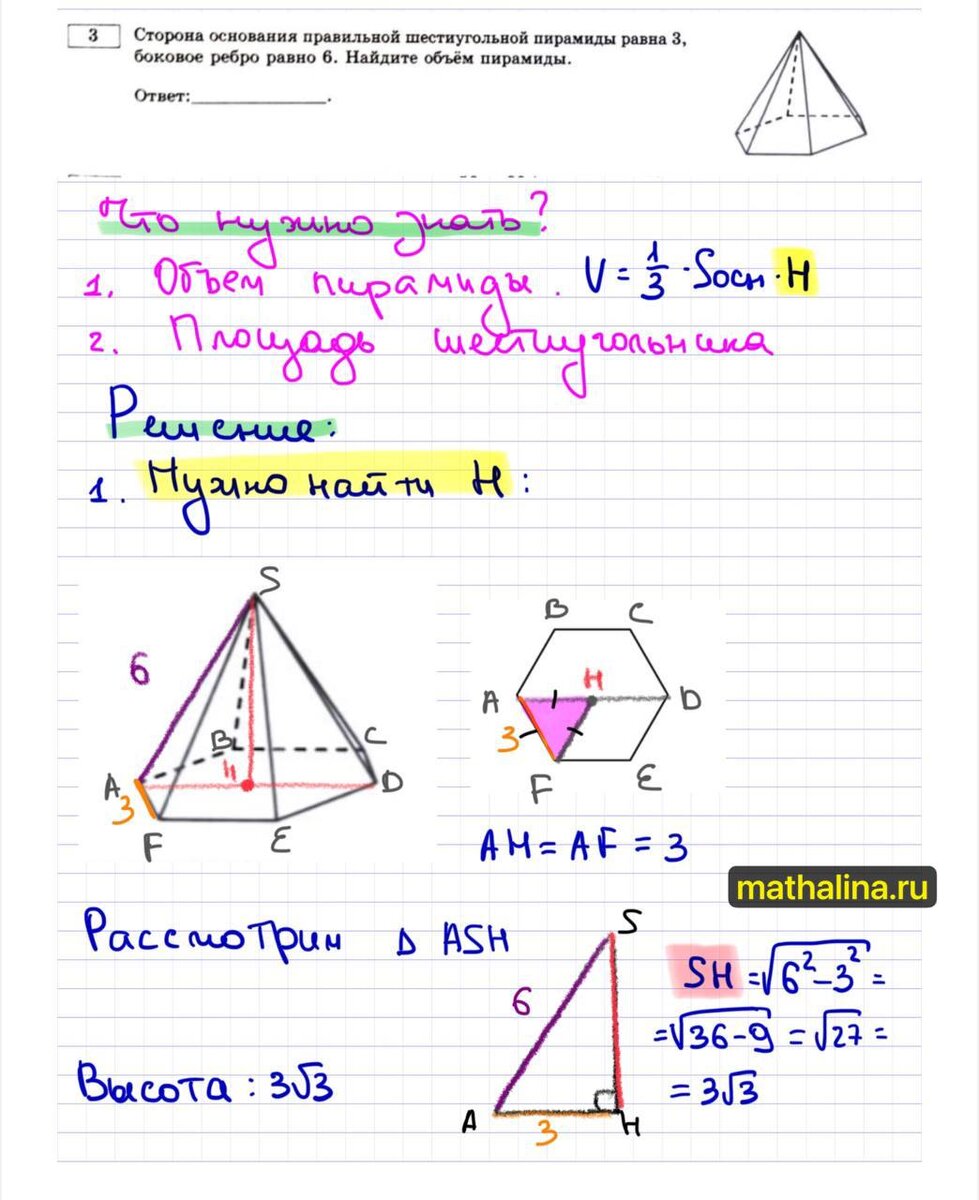 3 Сторона основания правильной шестиугольной пирамиды равна 3,
боковое ребро равно 6. Найдите объём пирамиды.
Ответ:_______________.
Что нужно знать?
1. Объем пирамиды. V = 1/3 · Sосн · H
2. Площадь шестиугольника
Решение:
1. Нужно найти H:
S
6
B
C
A
H
D
3
F
E
B C
A H D
3
F E
AH = AF = 3
mathalina.ru
Рассмотрим Δ ASH
S
6
A
3
H
SH = √6²-3² =
= √36-9 = √27 =
= 3√3
Высота : 3√3